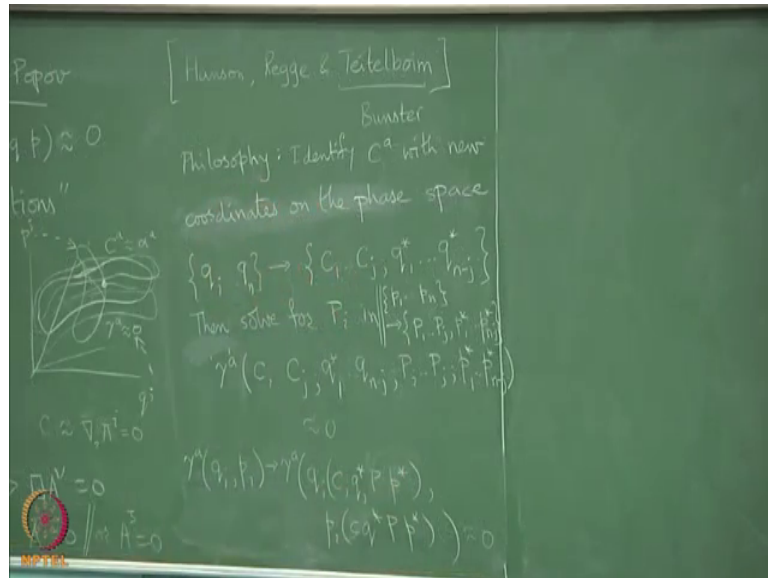 Popov
q p) ≈ 0
tions"
p^i C^a = α^a
γ^a ≈ 0
q^i
C ≈ ∇_i π^i = 0
A^ν = 0
A^3 = 0
[Hanson, Regge & Teitelboim]
Bunster
Philosophy : Identify C^a with new
coordinates on the phase space
{q_i .. q_n} → {C_1 .. C_j, q*_1 ... q*_{n-j}}
Then solve for P_i in || {p_1 .. p_n}
→ {P_1 .. P_j, p*_1 .. p*_{n-j}}
γ^a (C_1 C_j, q*_1 .. q_{n-j}, P_1 .. P_j; p*_1 .. p*_{n-j})
≈ 0
γ^a (q_i, p_i) → γ^a (q_i (C, q*, P p*),
p_i (C q* P p*)) ≈ 0
NPTEL